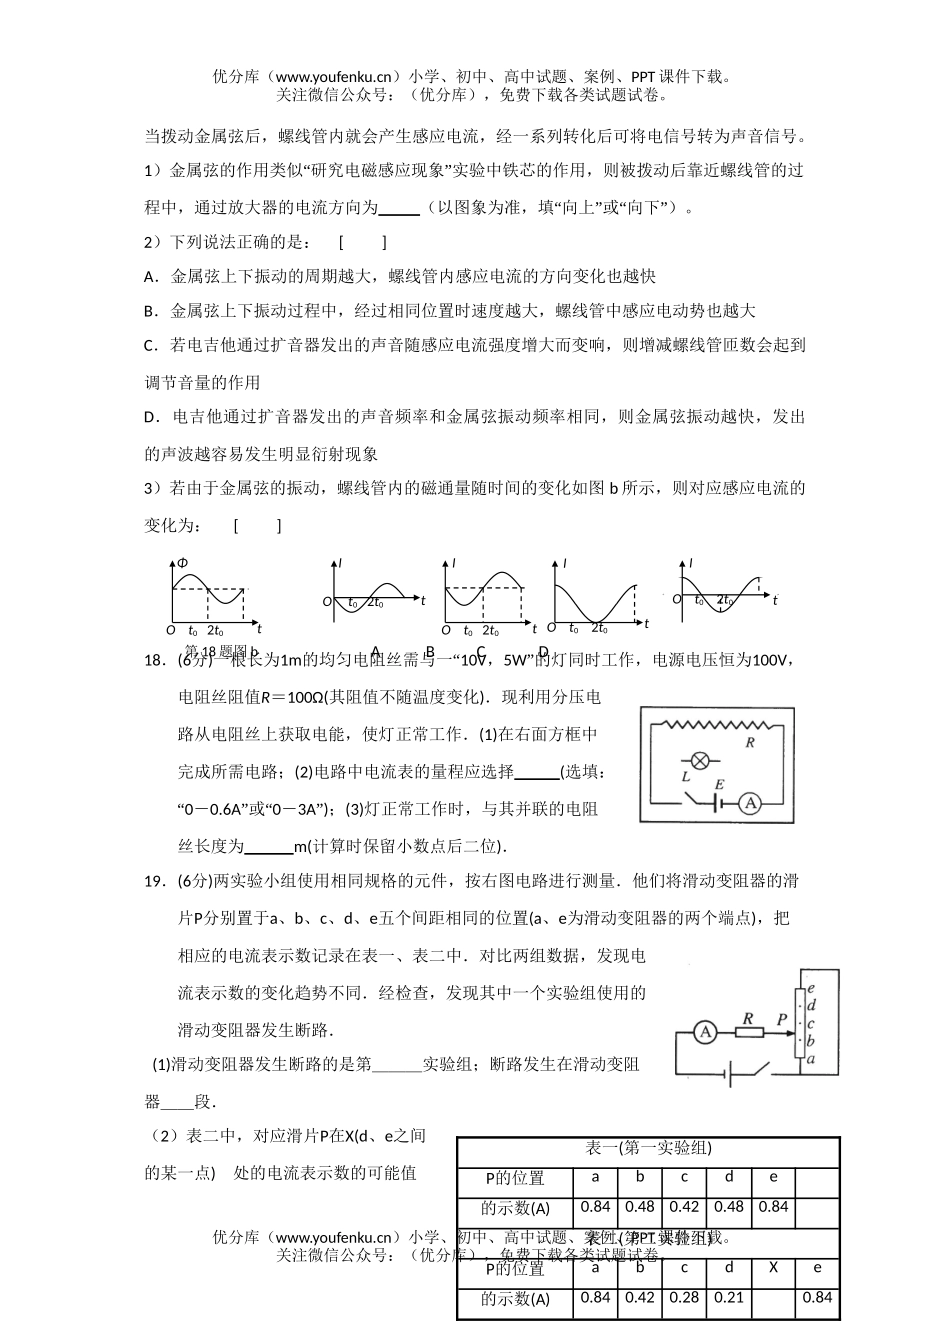 优分库（www.youfenku.cn）小学、初中、高中试题、案例、PPT 课件下载。
关注微信公众号：（优分库），免费下载各类试题试卷。
当拨动金属弦后，螺线管内就会产生感应电流，经一系列转化后可将电信号转为声音信号。
1）金属弦的作用类似“研究电磁感应现象”实验中铁芯的作用，则被拨动后靠近螺线管的过
程中，通过放大器的电流方向为_____（以图象为准，填“向上”或“向下”）。
2）下列说法正确的是： [ ]
A．金属弦上下振动的周期越大，螺线管内感应电流的方向变化也越快
B．金属弦上下振动过程中，经过相同位置时速度越大，螺线管中感应电动势也越大
C．若电吉他通过扩音器发出的声音随感应电流强度增大而变响，则增减螺线管匝数会起到
调节音量的作用
D．电吉他通过扩音器发出的声音频率和金属弦振动频率相同，则金属弦振动越快，发出
的声波越容易发生明显衍射现象
3）若由于金属弦的振动，螺线管内的磁通量随时间的变化如图 b 所示，则对应感应电流的
变化为： [ ]
Φ I I I I
O t₀ 2t₀ t O t₀ 2t₀ t O t₀ 2t₀ t O t₀ 2t₀ t O t₀ 2t₀ t
第 18 题图 b A B C D
18．(6分)一根长为1m的均匀电阻丝需与一“10V，5W”的灯同时工作，电源电压恒为100V，
电阻丝阻值R＝100Ω(其阻值不随温度变化)．现利用分压电
路从电阻丝上获取电能，使灯正常工作．(1)在右面方框中
完成所需电路；(2)电路中电流表的量程应选择______(选填：
“0－0.6A”或“0－3A”)；(3)灯正常工作时，与其并联的电阻
丝长度为______m(计算时保留小数点后二位)．
R
L
E
A
19．(6分)两实验小组使用相同规格的元件，按右图电路进行测量．他们将滑动变阻器的滑
片P分别置于a、b、c、d、e五个间距相同的位置(a、e为滑动变阻器的两个端点)，把
相应的电流表示数记录在表一、表二中．对比两组数据，发现电
流表示数的变化趋势不同．经检查，发现其中一个实验组使用的
滑动变阻器发生断路．
A R P e d c b a
(1)滑动变阻器发生断路的是第______实验组；断路发生在滑动变阻
器____段．
（2）表二中，对应滑片P在X(d、e之间
的某一点) 处的电流表示数的可能值
表一(第一实验组)
P的位置 a b c d e
的示数(A) 0.84 0.48 0.42 0.48 0.84
表二(第二实验组)
P的位置 a b c d X e
的示数(A) 0.84 0.42 0.28 0.21 0.84
优分库（www.youfenku.cn）小学、初中、高中试题、案例、PPT 课件下载。
关注微信公众号：（优分库），免费下载各类试题试卷。